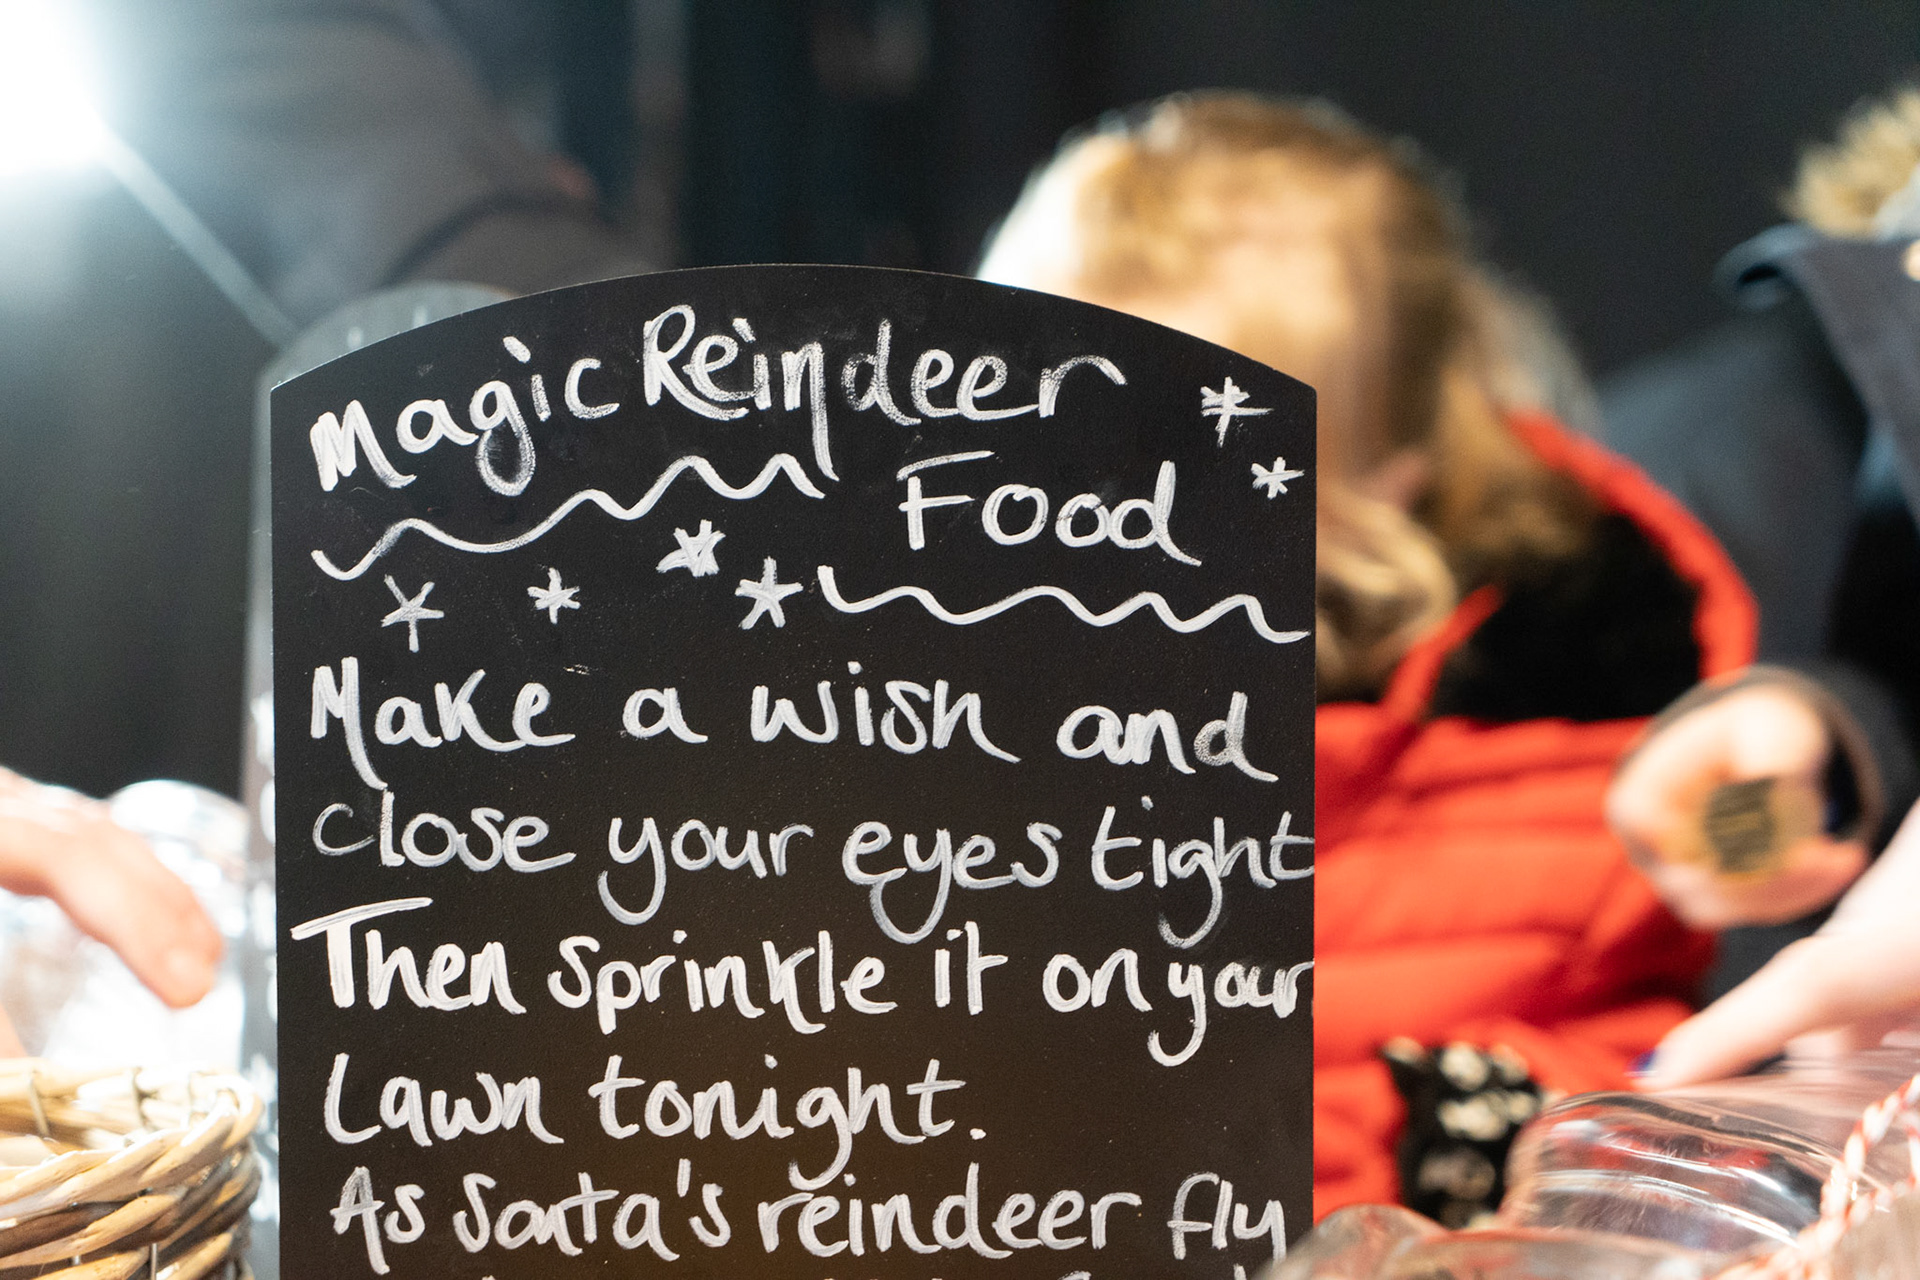 Magic Reindeer
Food
Make a wish and
close your eyes tight
Then sprinkle it on your
Lawn tonight.
As Santa's reindeer fly